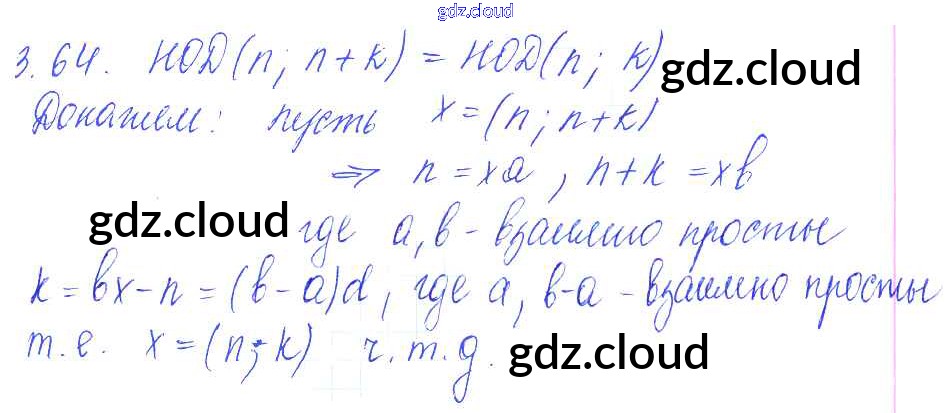 gdz.cloud
3.64. НОД(n; n+k) = НОД(n; k)
gdz.cloud
Докажем: пусть x=(n; n+k)
⇒ n=xa, n+k=xb
gdz.cloud
где a, b - взаимно простые
k=bx-n=(b-a)d, где a, b-a - взаимно простые
т.е. x=(n; k) ч.т.д.
gdz.cloud